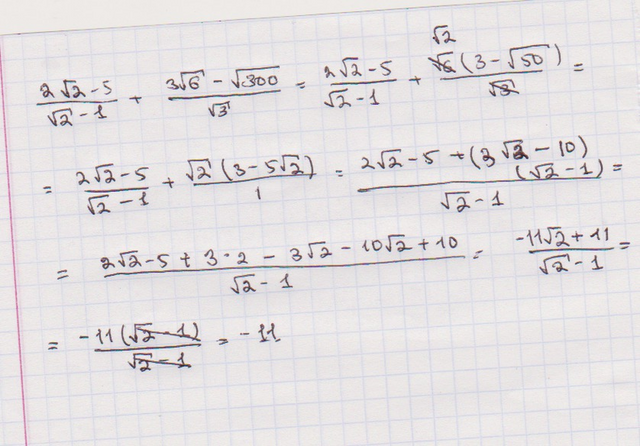 (2√2-5)/(√2-1) + (3√6-√300)/√3 = (2√2-5)/(√2-1) + √2 √6(3-√50)/√3 =
= (2√2-5)/(√2-1) + √2(3-5√2)/1 = (2√2-5+(3√2-10)(√2-1))/(√2-1) =
= (2√2-5+3·2-3√2-10√2+10)/(√2-1) = (-11√2+11)/(√2-1) =
= -11(√2-1)/(√2-1) = -11